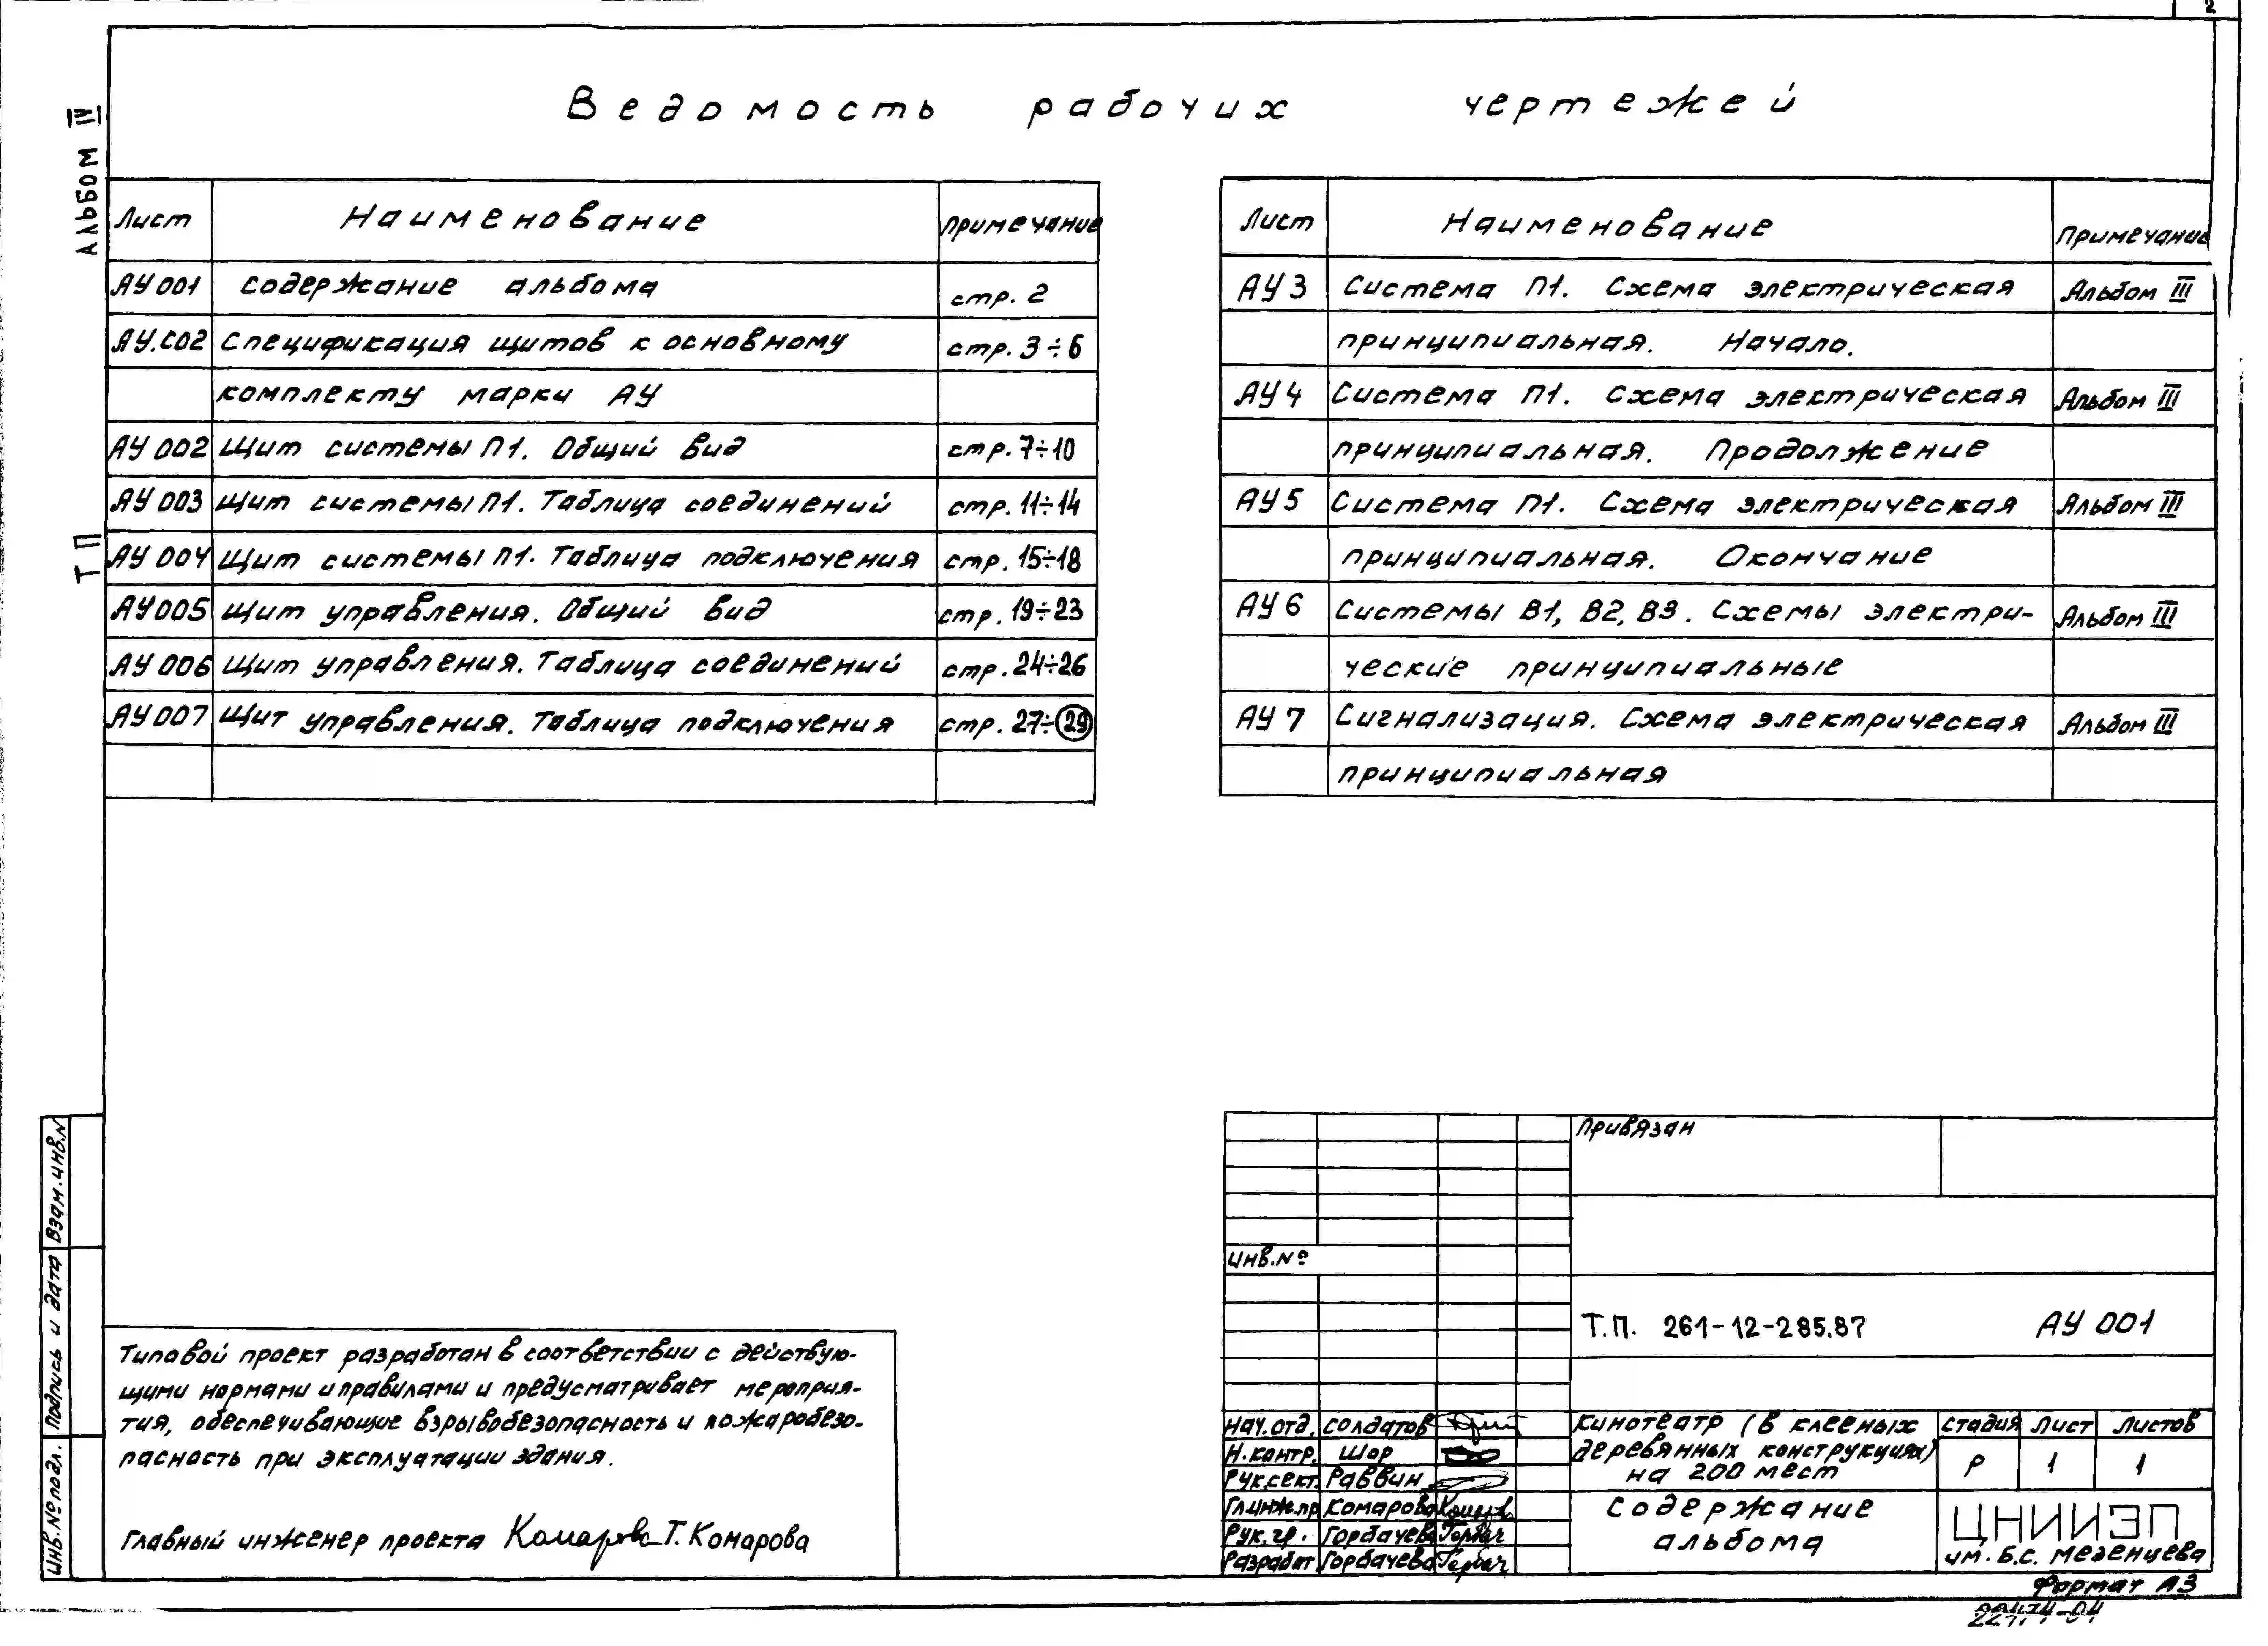 2
Ведомость рабочих чертежей
Альбом IV
ТП
Лист Наименование Примечание
АУ001 Содержание альбома стр. 2
АУ.СО2 Спецификация щитов к основному стр. 3÷6
комплекту марки АУ
АУ 002 Щит системы П1. Общий вид стр. 7÷10
АУ 003 Щит системы П1. Таблица соединений стр. 11÷14
АУ 004 Щит системы П1. Таблица подключения стр. 15÷18
АУ005 Щит управления. Общий вид стр. 19÷23
АУ 006 Щит управления. Таблица соединений стр. 24÷26
АУ007 Щит управления. Таблица подключения стр. 27÷29
Лист Наименование Примечание
АУ3 Система П1. Схема электрическая Альбом III
принципиальная. Начало.
АУ4 Система П1. Схема электрическая Альбом III
принципиальная. Продолжение
АУ5 Система П1. Схема электрическая Альбом III
принципиальная. Окончание
АУ6 Системы В1, В2, В3. Схемы электри- Альбом III
ческие принципиальные
АУ7 Сигнализация. Схема электрическая Альбом III
принципиальная
Взам.инв.N
Подпись и дата
Инв.№ подл.
Типовой проект разработан в соответствии с действую-
щими нормами и правилами и предусматривает мероприя-
тия, обеспечивающие взрывобезопасность и пожаробезо-
пасность при эксплуатации здания.
Главный инженер проекта Комарова Т. Комарова
Привязан
Инв.№
Т.П. 261-12-285.87 АУ 001
Нач.отд. Солдатов
Н.контр. Шор
Рук.сект. Раввин
Гл.инж.пр Комарова Комарова
Рук.гр. Горбачева Горбач
Разработ Горбачева Горбач
Кинотеатр (в клееных
деревянных конструкциях)
на 200 мест
Стадия Лист Листов
Р 1 1
Содержание
альбома
ЦНИИЭП
им. Б.С. Мезенцева
Формат А3
22474-04